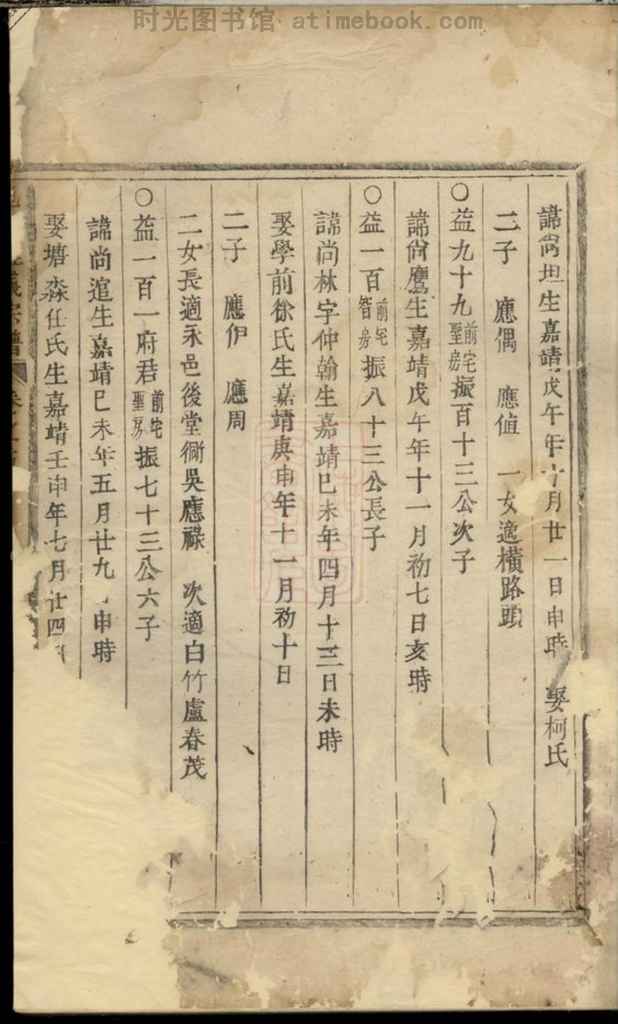 时光图书馆 atimebook.com
諱尙坦生嘉靖戊午年十月廿一日申時 娶柯氏
二子 應偶 應値 一女適橫路頭
○益九十九前宅聖房振百十三公次子
諱尙鷹生嘉靖戊午年十一月初七日亥時
○益一百前宅智房振八十三公長子
諱尚林字仲翰生嘉靖巳未年四月十三日未時
娶學前徐氏生嘉靖庚申年十一月初十日
二子 應伊 應周
二女長適永邑後堂衕吳應祿 次適白竹盧春茂
○益一百一府君前宅聖房振七十三公六子
諱尚逭生嘉靖巳未年五月廿九日申時
娶塘森任氏生嘉靖壬申年七月廿四
宗譜